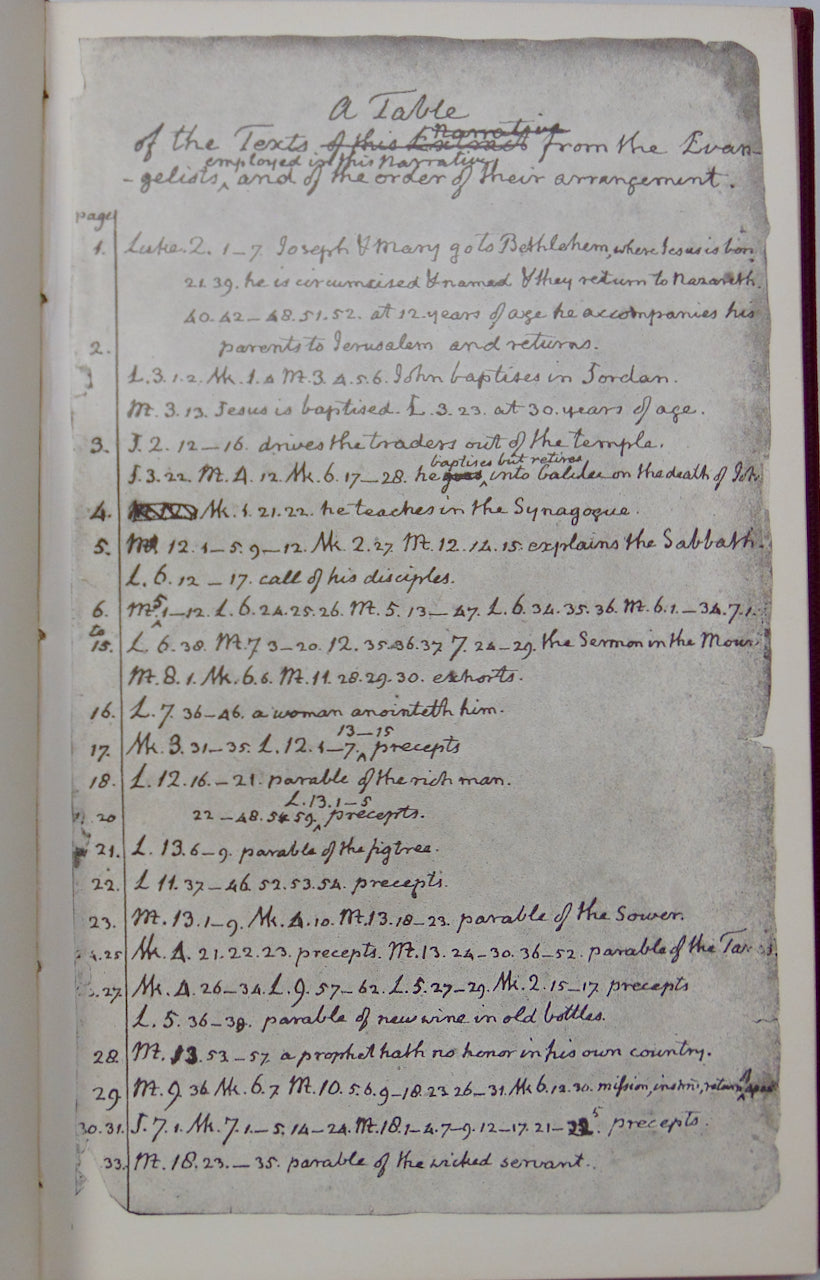 A Table
of the Texts of this Extract narrative from the Evan-
-gelists, employed in this Narrative and of the order of their arrangement.
page
1. Luke. 2. 1–7. Joseph & Mary go to Bethlehem, where Jesus is born
21. 39. he is circumcised & named & they return to Nazareth.
40. 42–48. 51. 52. at 12 years of age he accompanies his
2. parents to Jerusalem and returns.
L. 3. 1. 2. Mk. 1. 4 Mt. 3. 4. 5. 6. John baptises in Jordan.
Mt. 3. 13. Jesus is baptised. L. 3. 23. at 30. years of age.
3. J. 2. 12–16. drives the traders out of the temple.
J. 3. 22. Mt. 4. 12 Mk. 6. 17–28. he goes baptises but retires into Galilee on the death of Joh
4. Mk. 1. 21. 22. he teaches in the Synagogue.
5. Mt. 12. 1–5. 9–12. Mk. 2. 27. Mt. 12. 14. 15. explains the Sabbath.
L. 6. 12–17. call of his disciples.
6. Mt. 5. 1–12. L. 6. 24. 25. 26. Mt. 5. 13–47. L. 6. 34. 35. 36. Mt. 6. 1.–34. 7. 1.
to
15. L. 6. 38. Mt. 7. 3–20. 12. 35. 36. 37. 7. 24–29. the Sermon in the Moun
Mt. 8. 1. Mk. 6. 6. Mt. 11. 28. 29. 30. exhorts.
16. L. 7. 36–46. a woman anointeth him.
17. Mk. 3. 31–35. L. 12. 1–7. 13–15 precepts
18. L. 12. 16.–21. parable of the rich man.
20 22–48. 54. 59. L. 13. 1–5 precepts.
21. L. 13. 6–9. parable of the figtree.
22. L. 11. 37–46. 52. 53. 54. precepts.
23. Mt. 13. 1–9. Mk. 4. 10. Mt. 13. 18–23. parable of the Sower.
4. 25 Mk. 4. 21. 22. 23. precepts. Mt. 13. 24–30. 36–52. parable of the Tares.
27. Mk. 4. 26–34. L. 9. 57–62. L. 5. 27–29. Mk. 2. 15–17. precepts
L. 5. 36–38. parable of new wine in old bottles.
28. Mt. 13. 53–57. a prophet hath no honor in his own country.
29. Mt. 9. 36 Mk. 6. 7 Mt. 10. 5. 6. 9–18. 23. 26–31. Mk 6. 12. 30. mission, instrns, return
30. 31. J. 7. 1. Mk. 7. 1–5. 14–24. Mt. 18. 1–4. 7–9. 12–17. 21–35. precepts.
33. Mt. 18. 23.–35. parable of the wicked servant.